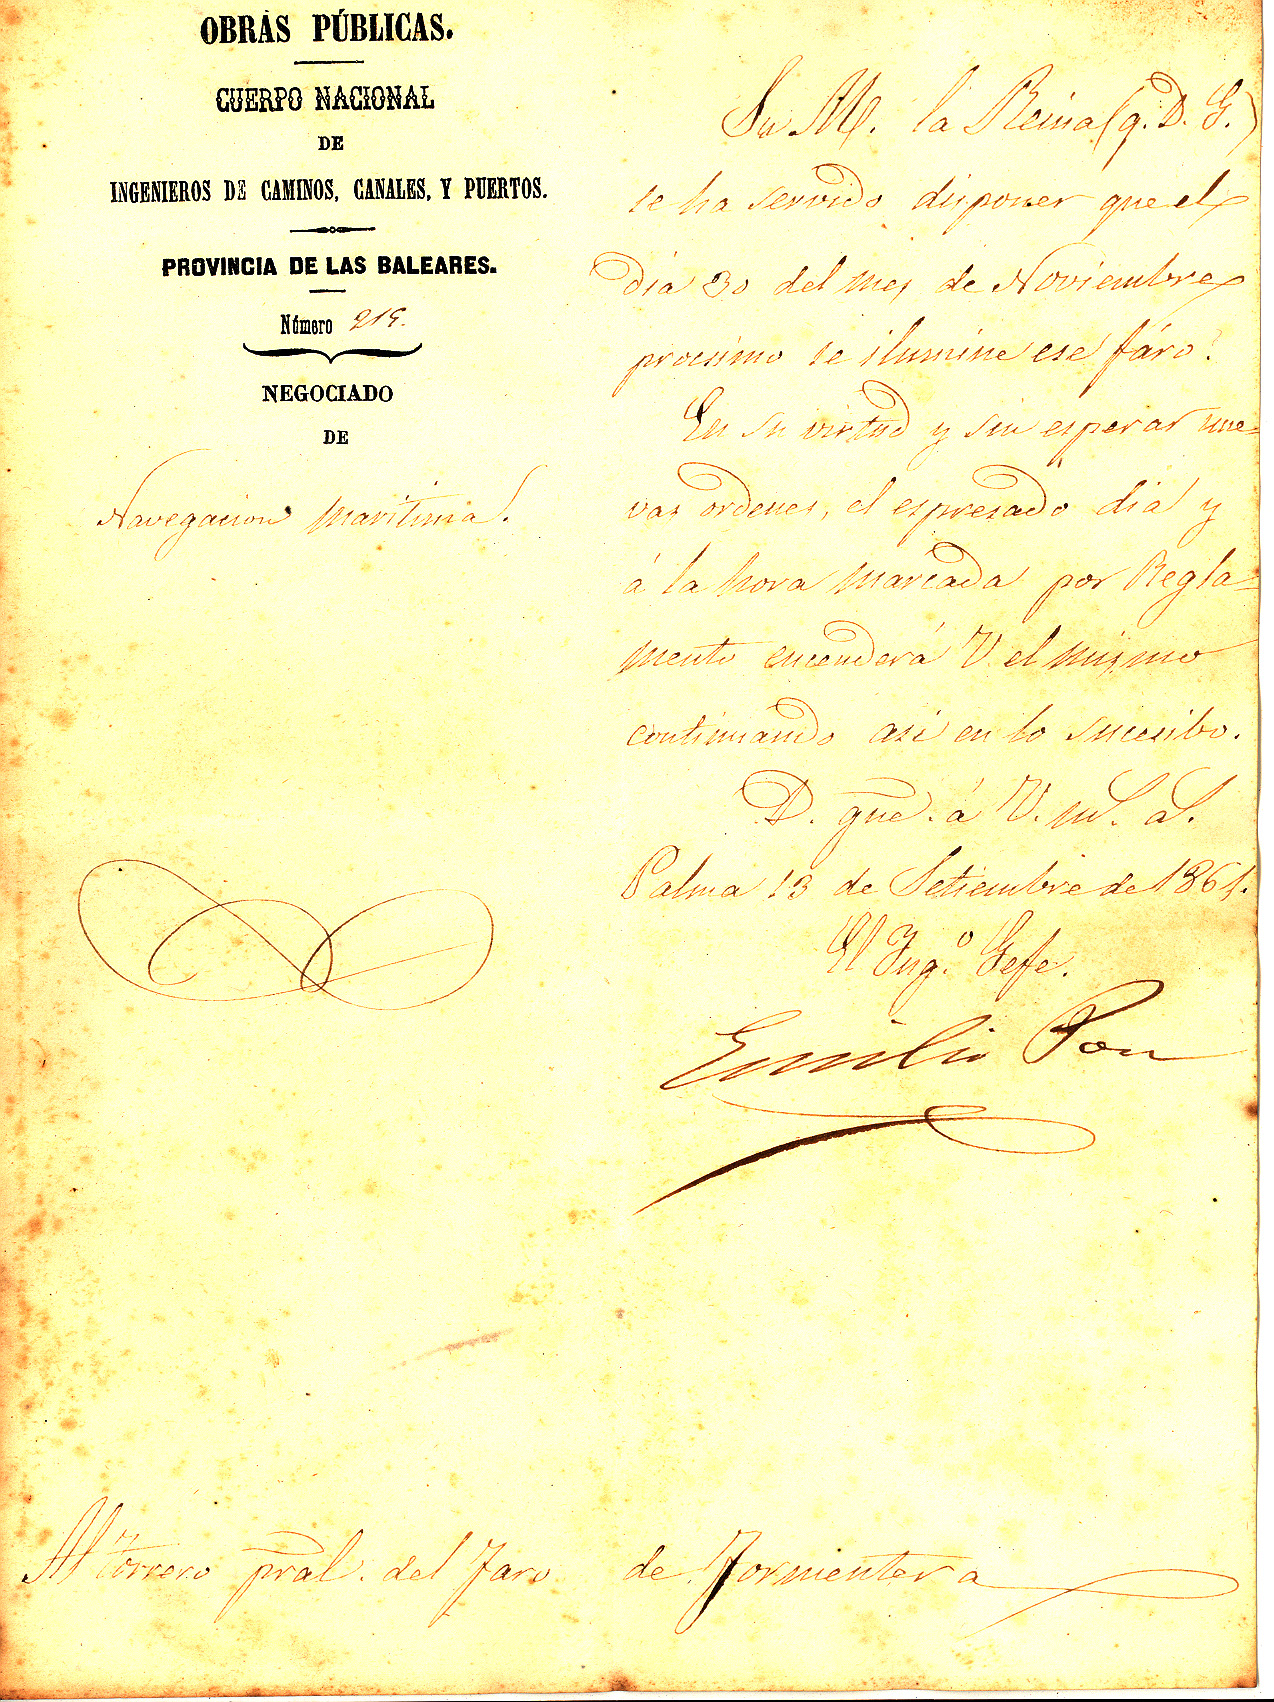 OBRAS PÚBLICAS.
CUERPO NACIONAL
DE
INGENIEROS DE CAMINOS, CANALES, Y PUERTOS.
PROVINCIA DE LAS BALEARES.
Número 219.
NEGOCIADO
DE
Navegacion maritima.
Su M. la Reina (q. D. G.)
se ha servido disponer que el
dia 30 del mes de Noviembre
procsimo se ilumine ese fáro.
En su virtud y sin esperar nue-
vas ordenes, el espresado dia y
á la hora marcada por Regla-
mento encenderá V. el mismo
continuando asi en lo sucesibo.
D. gue. á V. m.s a.s
Palma 13 de Setiembre de 1861.
El Ing.o Gefe.
Emilio Pou
Al torrero pral. del Faro de Formentera